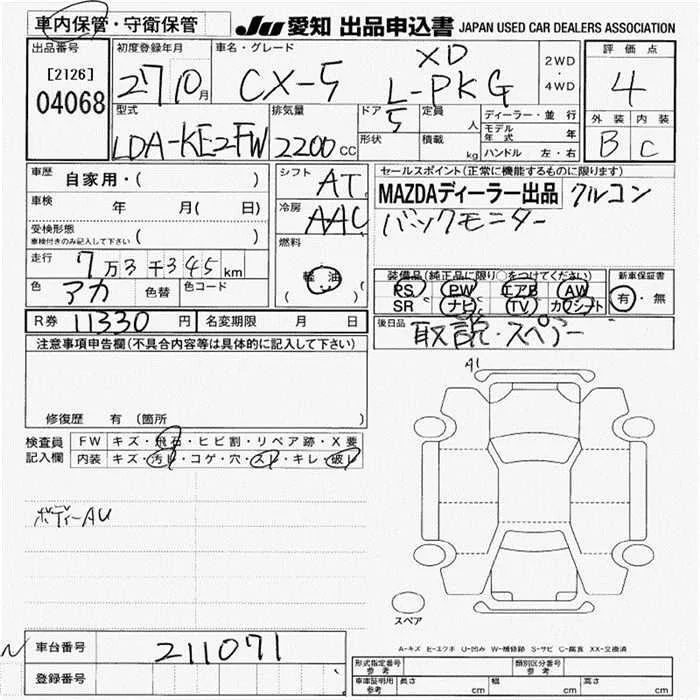 車内保管・守衛保管 JU 愛知 出品申込書 JAPAN USED CAR DEALERS ASSOCIATION
出品番号 初度登録年月 車名・グレード 評価点
[2126] 27 10月 CX-5 XD 2WD
04068 L-PKG ・4WD 4
型式 排気量 ドア 定員 人 ディーラー・並行 外装 内装
LDA-KE2FW 2200cc 5 モデル年式 年 B C
形状 積載 kg ハンドル 左・右
車歴 自家用・( ) シフト AT セールスポイント(正常に機能するものに限ります)
車検 年 月( 日) 冷房 AAC MAZDAディーラー出品 クルコン
受検形態 車検付きのみ記入して下さい ( ) バックモニター
走行 7万3千345km 燃料 軽油 ( )
装備品(純正品に限り○をつけてください) 新車保証書
色 アカ 色替 色コード PS PW エアB AW 有・無
SR ナビ TV カワシート
R券 11330円 名変期限 月 日 後日品 取説・スペアー
注意事項申告欄(不具合内容等は具体的に記入して下さい)
A1
修復歴 有 (箇所 )
検査員記入欄 FW キズ・飛石・ヒビ割・リペア跡・X要
内装 キズ・汚レ・コゲ・穴・スレ・キレ・破レ
ボディーAU
スペア
A-キズ E-エクボ U-凹み W-補修跡 S-サビ C-腐食 XX-交換済
車台番号 211071
登録番号
形式指定番号 参考 類別区分番号 参考
車庫証明用 参考 長さ cm 幅 cm 高さ cm